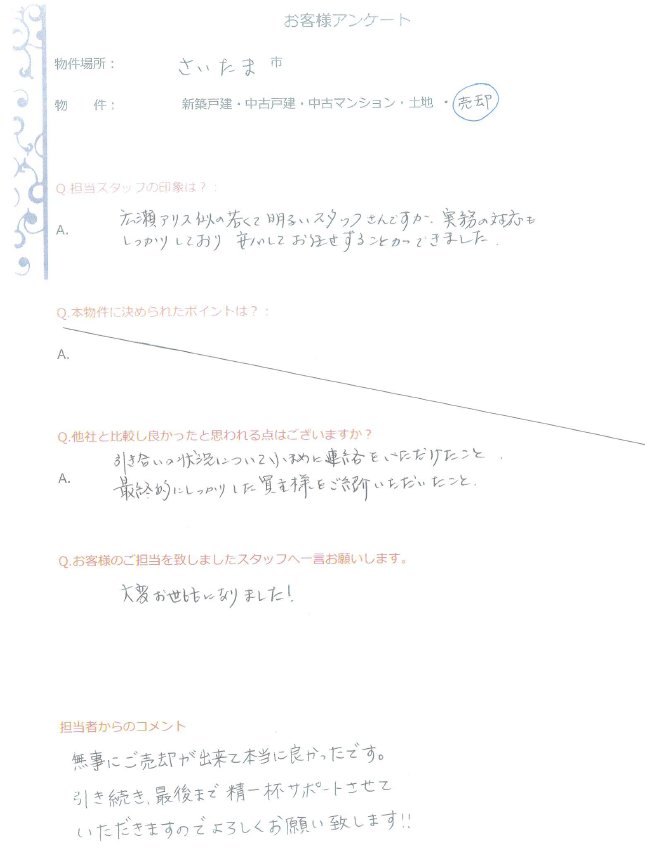 お客様アンケート
物件場所： さいたま 市
物　件： 新築戸建・中古戸建・中古マンション・土地 ・ 売却
Q 担当スタッフの印象は？：
A. 広瀬アリス似の若くて明るいスタッフさんですが、実務の対応も
しっかりしており 安心してお任せすることができました.
Q.本物件に決められたポイントは？：
A.
Q.他社と比較し良かったと思われる点はございますか？
引き合いの状況について小まめに連絡をいただけたこと.
A. 最終的にしっかりした買主様をご紹介いただいたこと.
Q.お客様のご担当を致しましたスタッフへ一言お願いします。
大変お世話になりました!
担当者からのコメント
無事にご売却が出来て本当に良かったです。
引き続き、最後まで精一杯サポートさせて
いただきますのでよろしくお願い致します!!